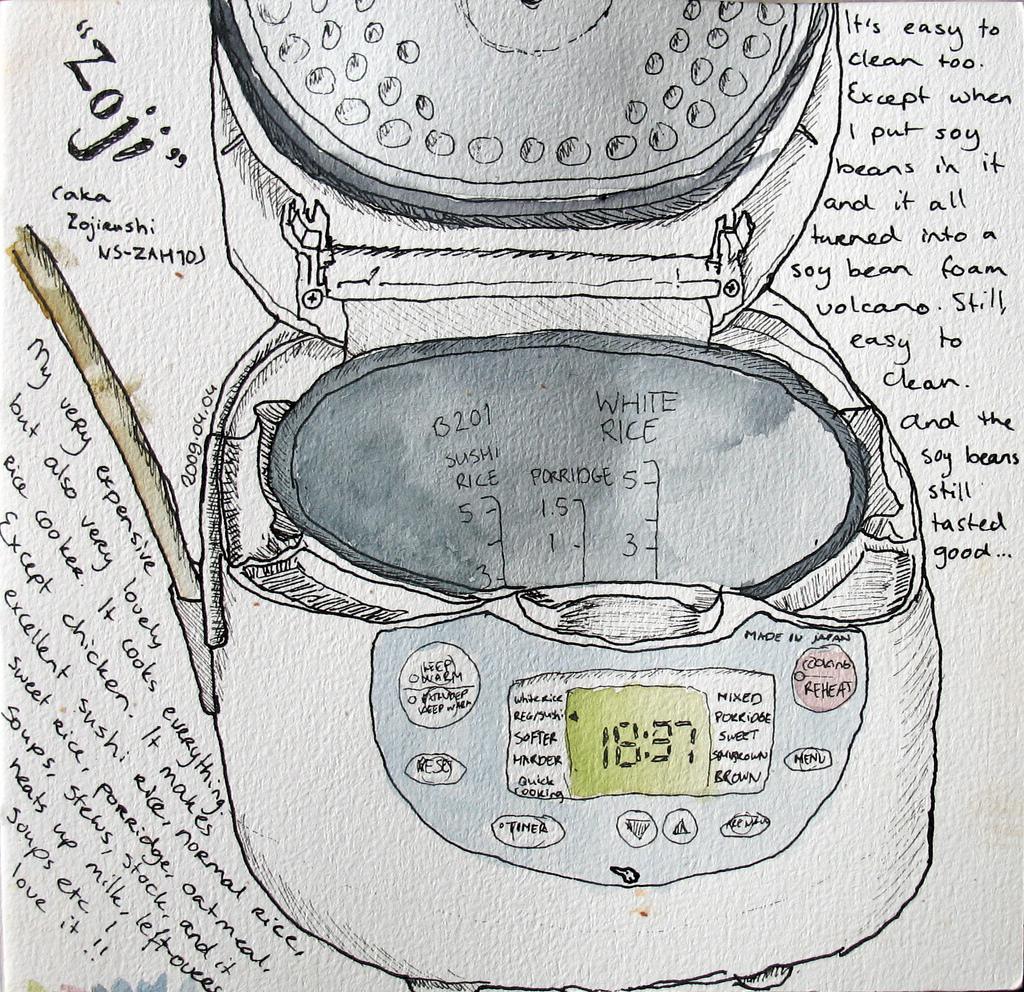 "Zoji"
(aka
Zojirushi
NS-ZAH10)
2009.04.04
My very expensive
but also very lovely
rice cooker. It cooks everything
Except chicken. It makes
excellent sushi rice, normal rice,
sweet rice, porridge, oatmeal,
soups, stews, stock, and it
heats up milk, leftovers
soups etc. I
love it!!
It's easy to
clean too.
Except when
I put soy
beans in it
and it all
turned into a
soy bean foam
volcano. Still,
easy to
clean.
and the
soy beans
still
tasted
good...
B201
SUSHI
RICE
5
3
PORRIDGE
1.5
1
WHITE
RICE
5
3
MADE IN JAPAN
KEEP
WARM
EXTENDED
KEEP WARM
RESET
TIMER
White Rice
REG/sushi
SOFTER
HARDER
Quick
cooking
18:37
MIXED
PORRIDGE
SWEET
SEMIBROWN
BROWN
COOKING
REHEAT
MENU